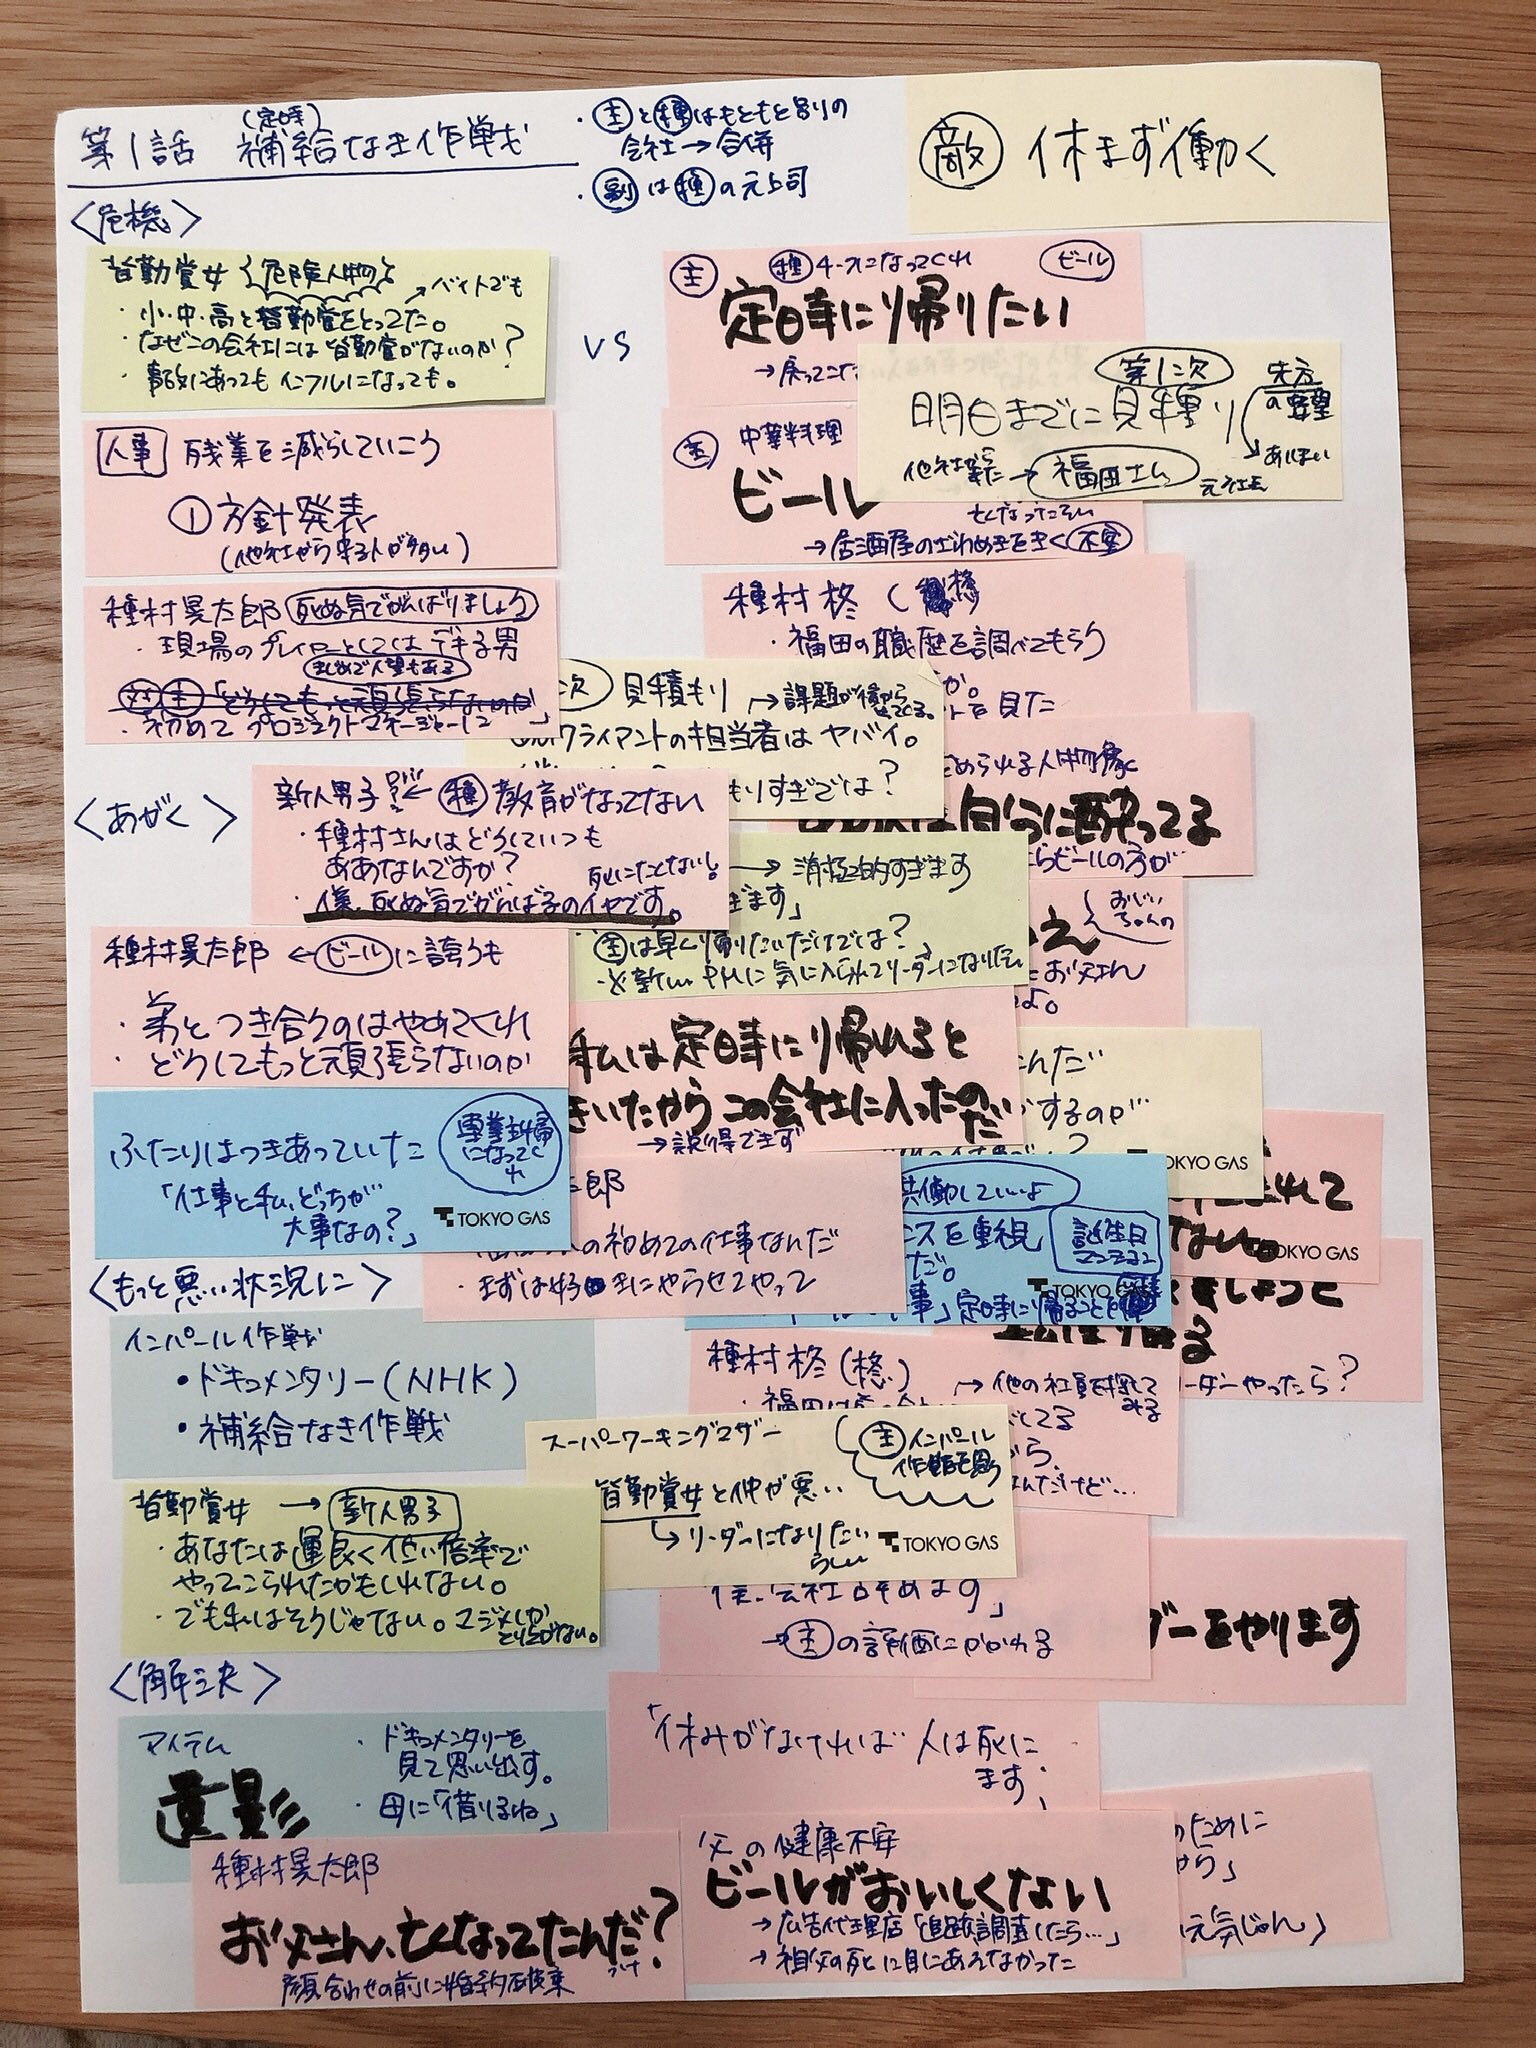 第1話 補給なき作戦
(定時)
・主と種はもともと別りの
会社→合併
・副は種の元上司
敵 休まず働く
〈危機〉
皆勤賞女 危険人物
・小・中・高と皆勤賞をとってた。→バイトでも
・なぜこの会社には皆勤賞がないのか?
・事故にあってもインフルになっても。
vs
主 種 ビール
定時に帰りたい
第1次
明日までに見積り
先方の要望
他社から来た→福田さん
元社長
人事 残業を減らしていこう
①方針発表
(他社から来る人が多い)
主 中華料理
ビール
→居酒屋のざわめきをきく 不安
種村晃太郎 死ぬ気でがんばりましょう
・現場のプレイヤーとしてはデキる男
まじめで人望もある
・初めてプロジェクトマネージャーに
種村柊
・福田の職歴を調べてもらう
か。
を見た
次 見積もり →課題が後から
クライアントの担当者はヤバイ。
もりすぎでは?
められる人物像
自分に酔ってる
らビールの方が…
〈あがく〉
新人男子 ← 種 教育がなってない
・種村さんはどうしていつも
ああなんですか?
死にたくないし。
・僕、死ぬ気でがんばるのイヤです。
→消極的すぎます
ぎます」
主は早く帰りたいだけでは?
※新しいPMに気に入られてリーダーになりたい
おじいちゃんの
え
お父さん
よ。
種村晃太郎 ← ビール に誘うも
・弟とつき合うのはやめてくれ
・どうしてもっと頑張らないのか
私は定時に帰れると
きいたからこの会社に入ったのだ
→説得できず
んだ
するのが…
TOKYO GAS
ふたりはつきあっていた
専業主婦になってくれ
「仕事と私、どっちが
大事なの?」
TOKYO GAS
郎
の初めての仕事なんだ
・まずは好きにやらせてやって
共働していいよ
スを重視
だ。
誕生日
マンション
TOKYO GAS
事」定時に帰ること
れて
ない。
TOKYO GAS
ましょうと
る
ーダーやったら?
〈もっと悪い状況に〉
インパール作戦
・ドキュメンタリー(NHK)
・補給なき作戦
種村柊(柊)
→他の社員を探してみる
してる
ら、
なんだけど…
スーパーワーキングマザー
主 インパール
皆勤賞女と仲が悪い
→リーダーになりたい
らしい
TOKYO GAS
皆勤賞女 → 新人男子
・あなたは運良く低い倍率で
やってこられたかもしれない。
・でも私はそうじゃない。マジメしか
とりえがない。
僕、会社辞めます」
→主の評価にかかわる
ダーをやります
〈解決〉
アイテム
遺影
・ドキュメンタリーを
見て思い出す。
・母に「借りるね」
「休みがなければ人は死に
ます」
種村晃太郎
お父さん、亡くなってたんだ?
顔合わせの前に婚約破棄
父の健康不安
ビールがおいしくない
→広告代理店「追跡調査したら…」
→祖父の死に目にあえなかった
のために
やら」
元気じゃん」